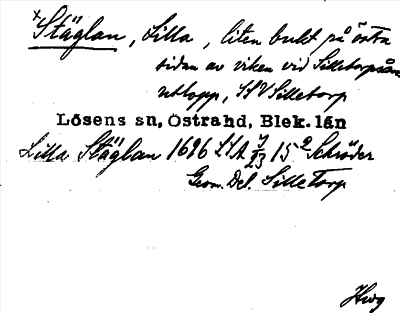 × Stäglan, Lilla, liten bukt på östra
sidan av viken vid Silletorpsåns
utlopp, SV Silletorp
Lösens sn, Östrahd, Blek. län
Lilla Stäglan 1696 LSA 15² Schröder
Geom. Del. Silletorp
Hwg